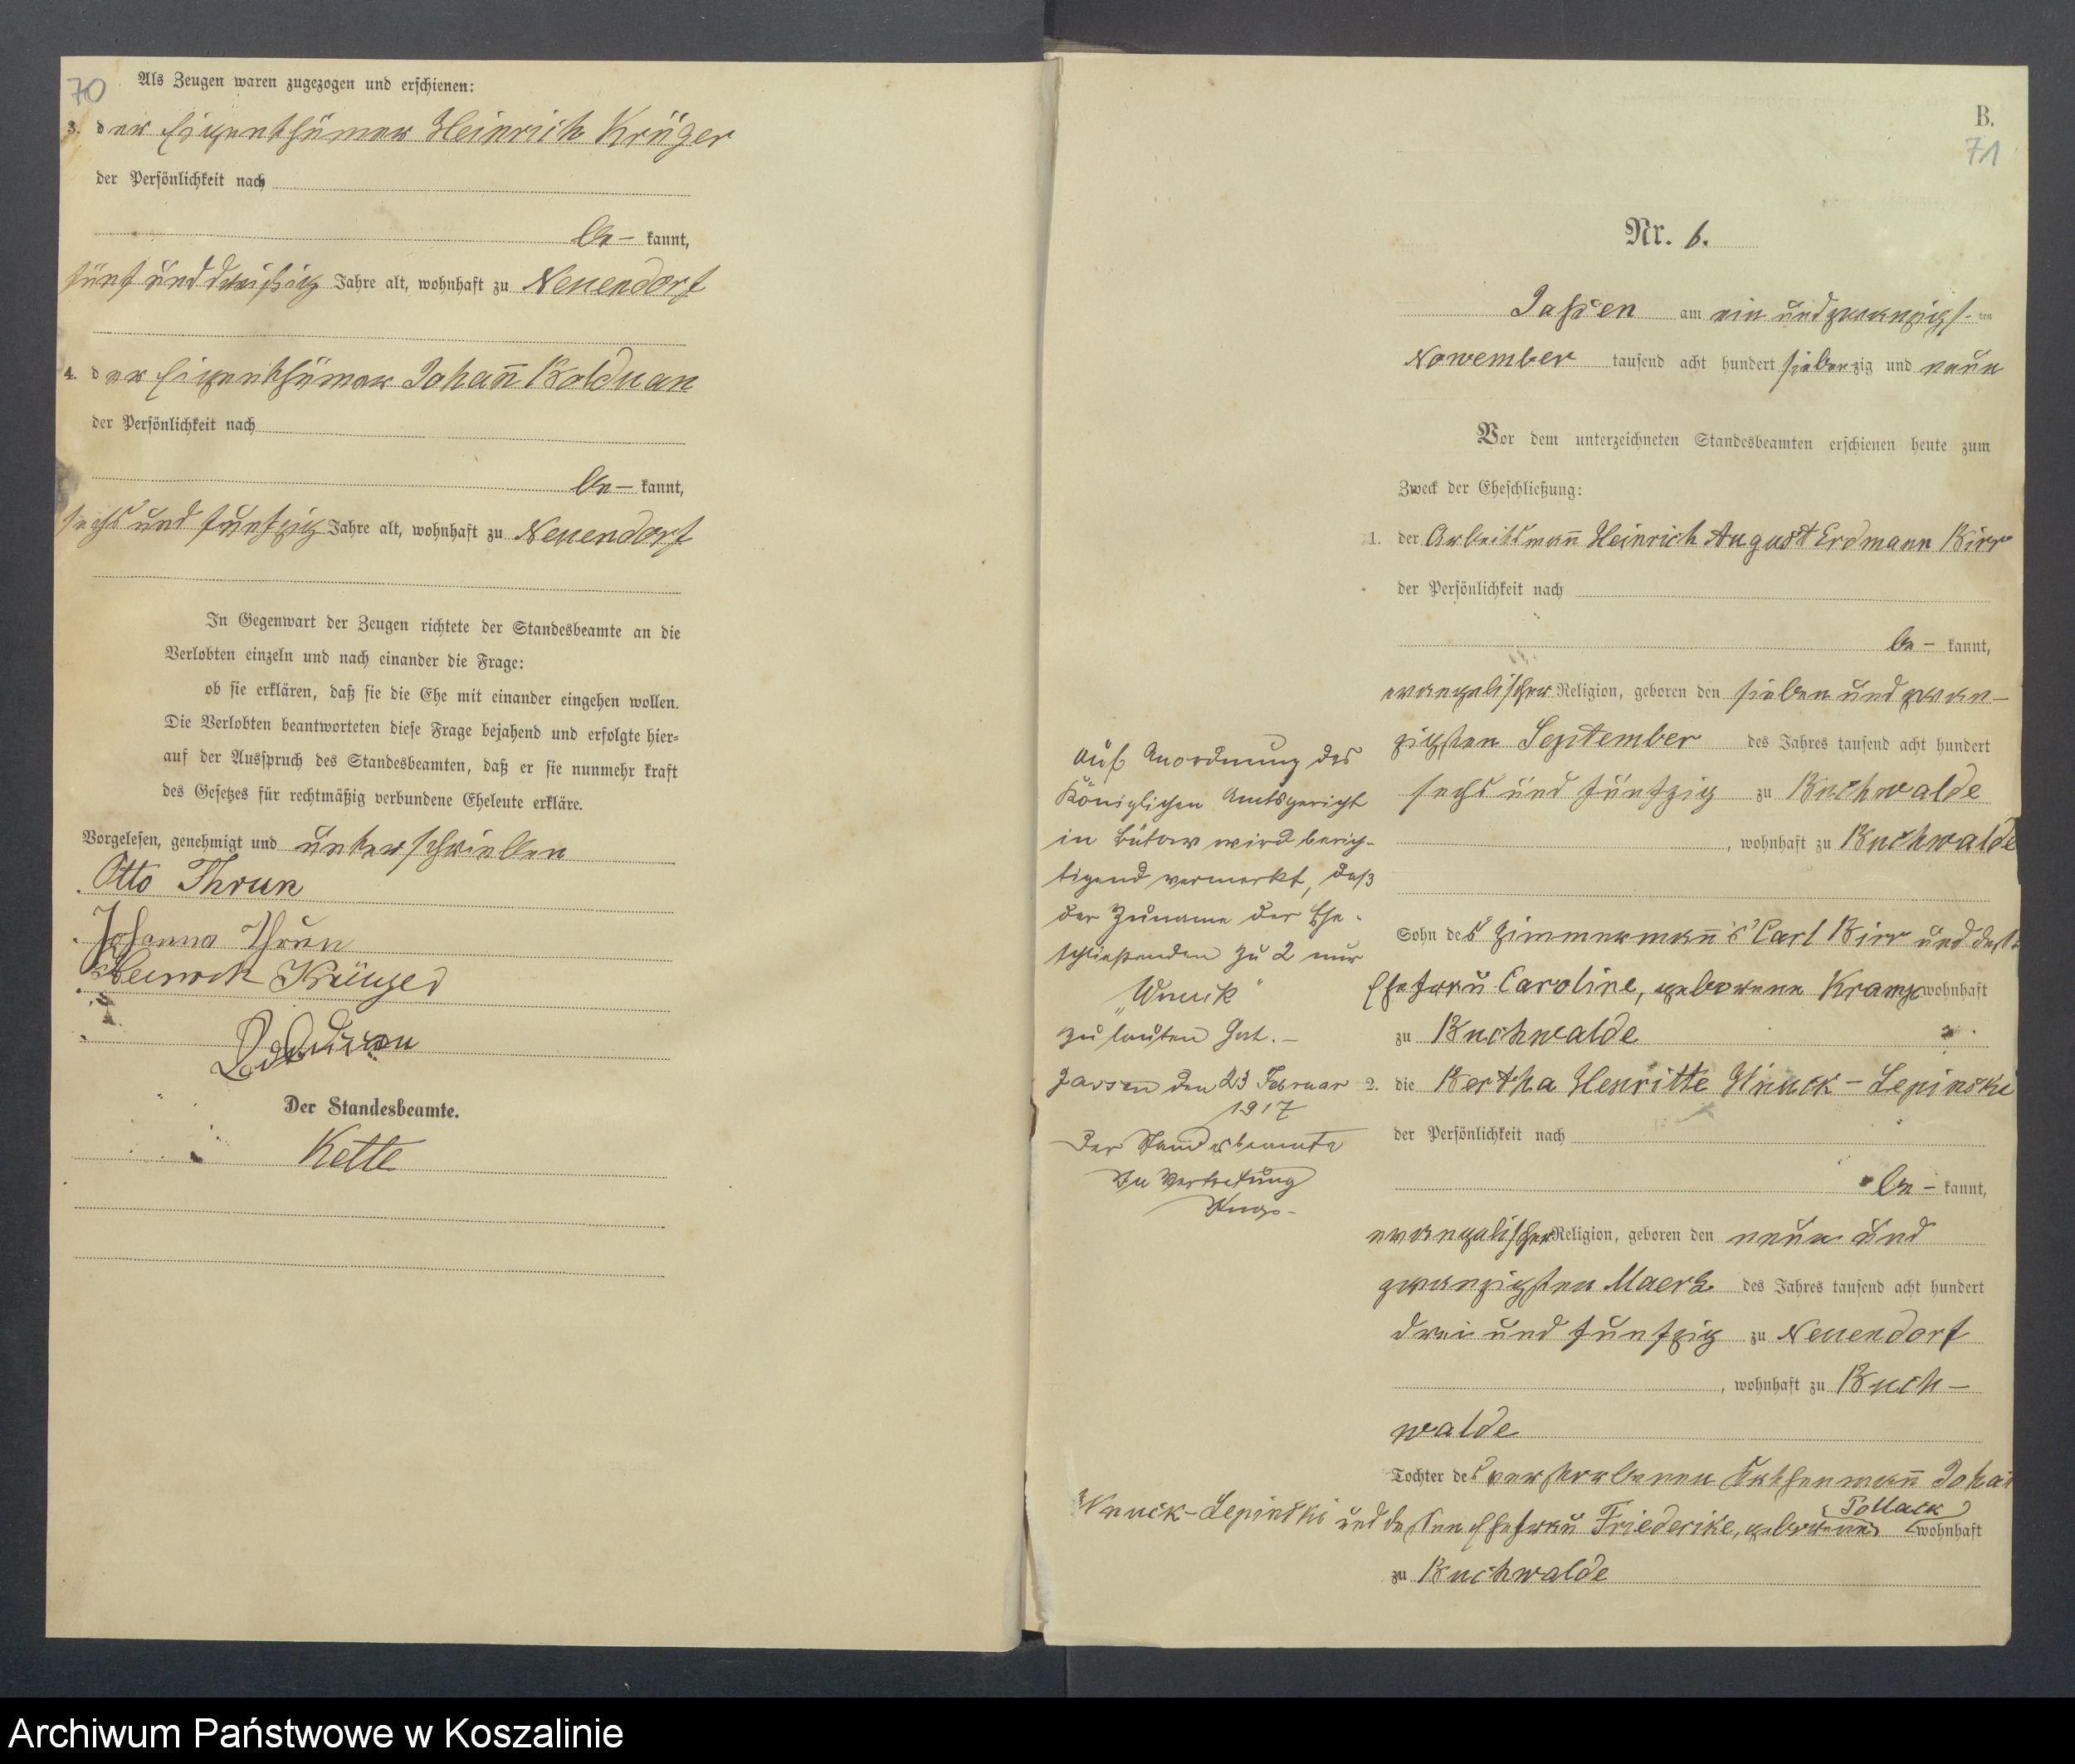 70
Als Zeugen waren zugezogen und erschienen:
3. der Eigenthümer Heinrich Krüger
der Persönlichkeit nach
be- kannt,
fünf und dreißig Jahre alt, wohnhaft zu Neuendorf
4. der Eigenthümer Johan̄ Kolduan
der Persönlichkeit nach
be- kannt,
sechs und funfzig Jahre alt, wohnhaft zu Neuendorf
In Gegenwart der Zeugen richtete der Standesbeamte an die
Verlobten einzeln und nach einander die Frage:
ob sie erklären, daß sie die Ehe mit einander eingehen wollen.
Die Verlobten beantworteten diese Frage bejahend und erfolgte hier=
auf der Ausspruch des Standesbeamten, daß er sie nunmehr kraft
des Gesetzes für rechtmäßig verbundene Eheleute erkläre.
Vorgelesen, genehmigt und unterschrieben
Otto Thrun
Johanna Thrun
Heinrich Krüger
Der Standesbeamte.
Kette
B.
71
Nr. 6.
Jassen am ein und zwanzigst- ten
November tausend acht hundert siebenzig und neun
Vor dem unterzeichneten Standesbeamten erschienen heute zum
Zweck der Eheschließung:
1. der Arbeitsman̄ Heinrich August Erdmann Birr
der Persönlichkeit nach
be- kannt,
evangelischer Religion, geboren den sieben und zwan-
zigsten September des Jahres tausend acht hundert
sechs und fünfzig zu Buchwalde
, wohnhaft zu Buchwalde
Sohn des Zimmerman̄s Carl Birr und dessen
Ehefrau Caroline, geborene Kramp wohnhaft
zu Buchwalde
2. die Bertha Henritte Wnuck-Lepinski
der Persönlichkeit nach
be- kannt,
evangelischer Religion, geboren den neun und
zwanzigsten Maerz des Jahres tausend acht hundert
drei und funfzig zu Neuendorf
, wohnhaft zu Buch-
walde
Tochter des verstorbenen Kathenman̄ Johan
Wnuck-Lepinski und dessen Ehefrau Friederike, geborene Pollack wohnhaft
zu Buchwalde
Auf Anordnung des
Königlichen Amtsgericht
in Bütow wird berich-
tigend vermerkt, daß
der Zuname der Ehe-
schließenden zu 2 nur
"Wnuck"
zu lauten hat.-
Jassen den 23 Februar
1917
Der Standesbeamte
In Vertretung
Archiwum Państwowe w Koszalinie